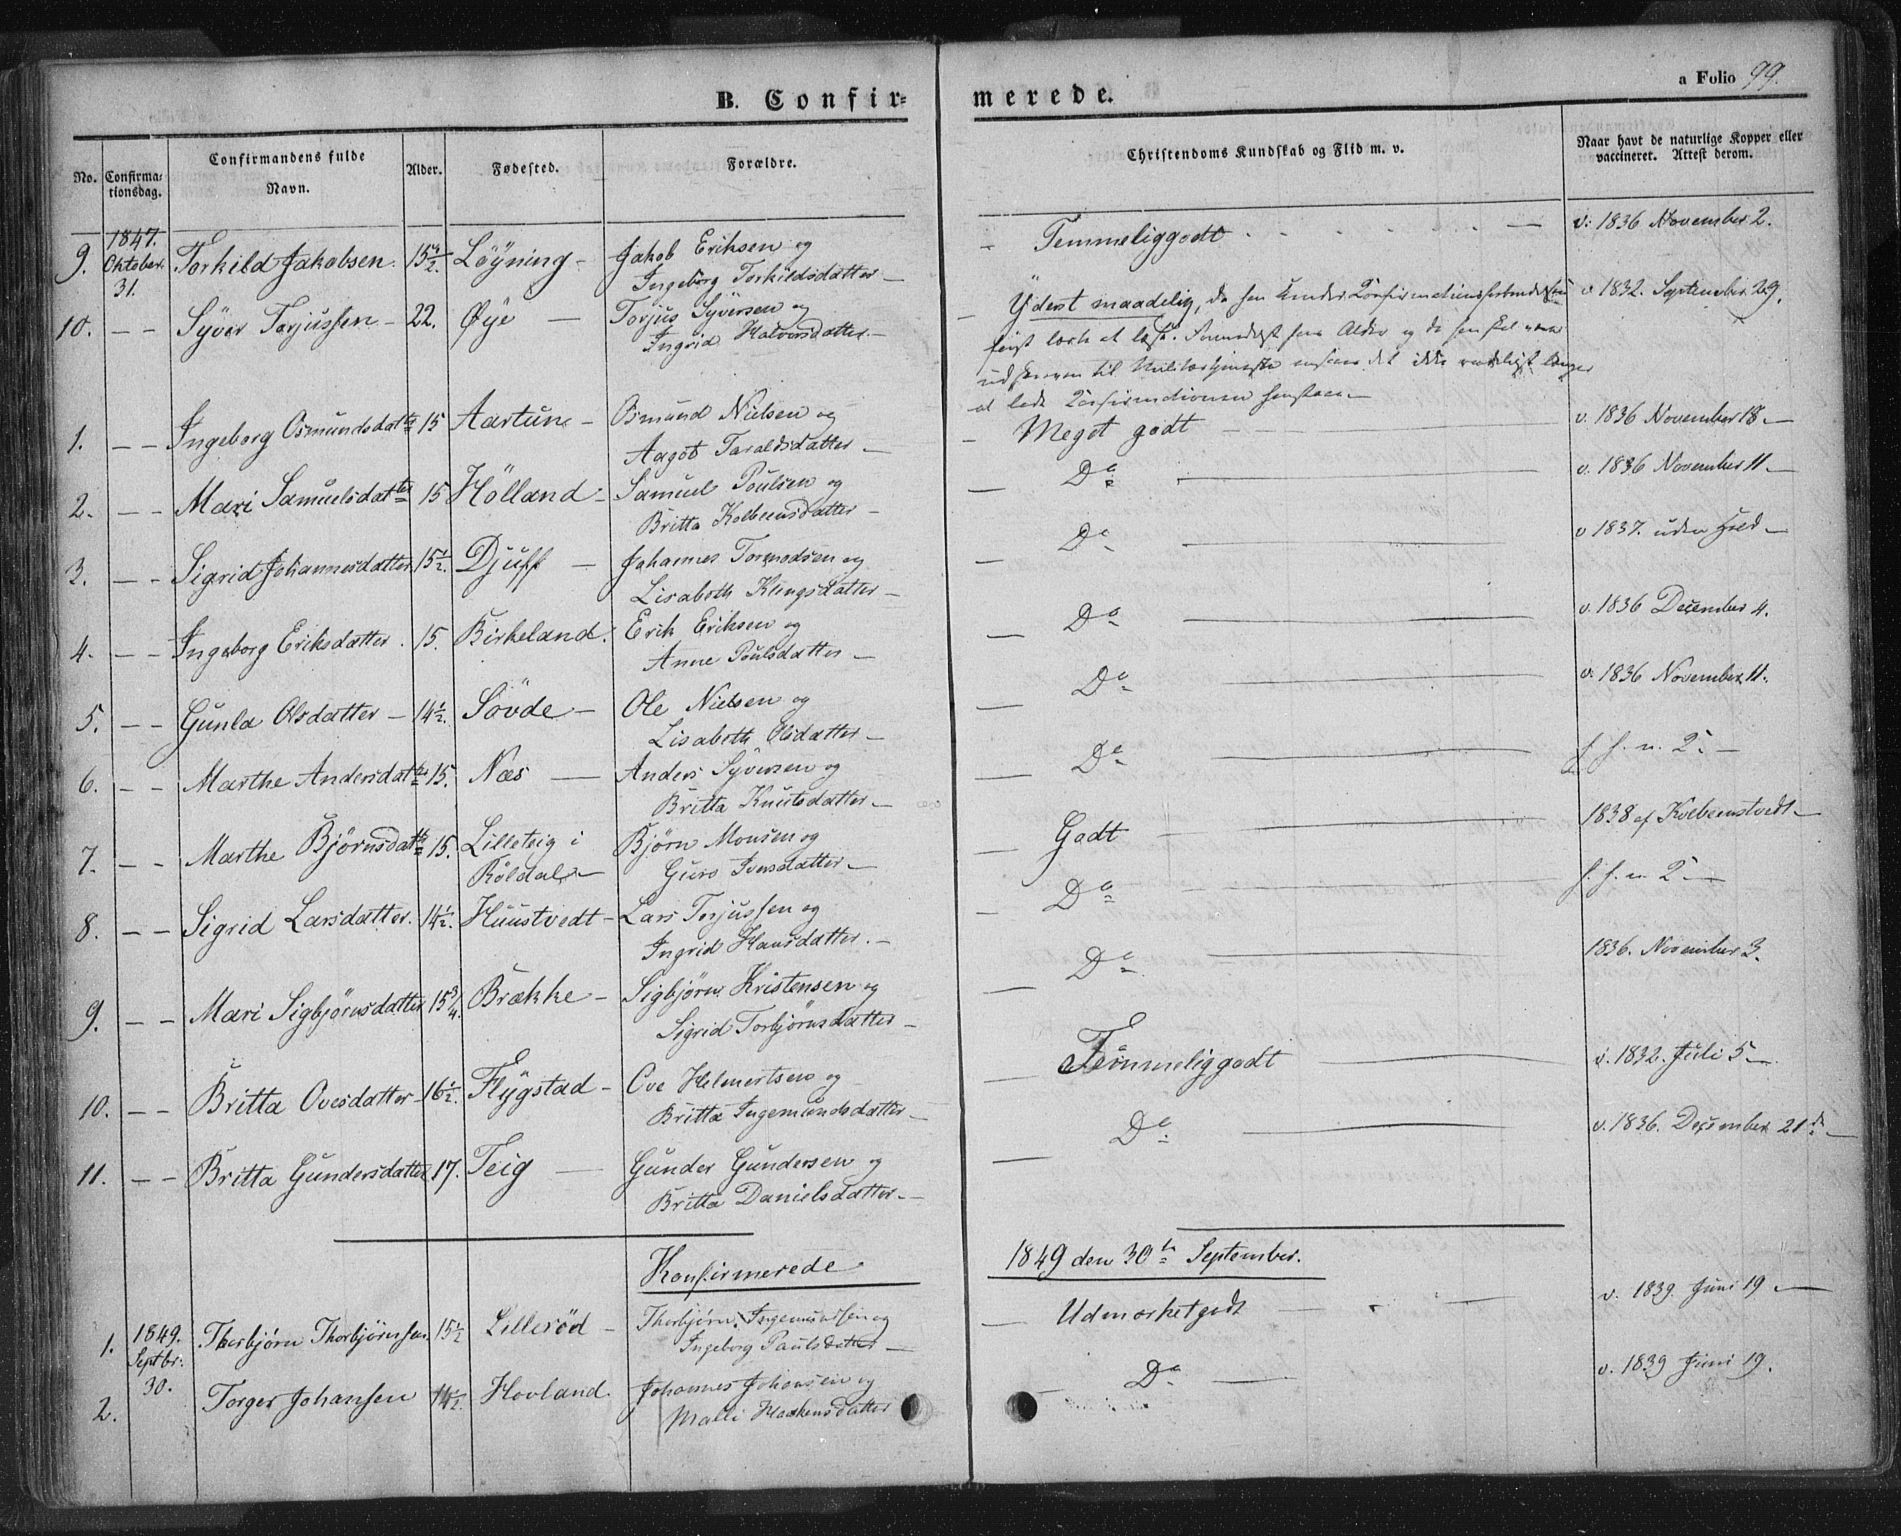 B. Confir-
merede.
a Folio 99.
No.
Confirma-
tionsdag.
Confirmandens fulde
Navn.
Alder.
Fødested.
Forældre.
Christendoms Kundskab og Flid m. v.
Naar havt de naturlige Kopper eller
vaccineret. Attest derom.
1847.
9. Oktober 31. Torkild Jakobsen. 15 1/2. Löyning - Jakob Eriksen og
Ingeborg Torkildsdatter —
Temmeliggodt — v: 1836 November 2.
10. — — Syver Torjussen — 22. Øye — Torjus Syversen og
Ingrid Halvorsdatter —
Yderst maadelig, da han under Confirmationsforberedelsen v 1832. September 29.
først lærte at læse. Formedelst hans Alder og da han skal være
udskreven til Militærtjeneste ansaaes det ikke raadeligst længer
at lade Confirmationen henstaae —
1. — — Ingeborg Osmundsdatter 15 Aartun — Osmund Nielsen og
Aagot Taraldsdatter —
Meget godt — v. 1836 November 18 —
2. — — Mari Samuelsdatter 15 Hölland — Samuel Poulsen og
Britta Kolbeensdatter —
Do — v. 1836 November 11 —
3. — — Sigrid Johannesdatter 15 1/2. Djuff — Johannes Tormodsen og
Lisabeth Klingsdatter —
Do — v 1837. uden Held —
4. — — Ingeborg Eriksdatter. 15. Birkeland. Erik Eriksen og
Anne Poulsdatter —
Do — v. 1836 December 4.
5. — — Gunla Olsdatter — 14 1/2. Søvde — Ole Nielsen og
Lisabeth Olsdatter —
Do — v. 1836 November 11.
6. — — Marthe Andersdatter 15. Næs — Anders Syversen og
Britta Knutsdatter —
Do — h. h. n. 2. —
7. — — Marthe Bjørnsdatter 15. Lilleteig i
Röldal — Bjørn Monsen og
Guro Iversdatter —
Godt — 1838 af Kolbeenstvedt —
8. — — Sigrid Larsdatter. 14 1/2. Huustvedt — Lars Torjussen og
Ingrid Hansdatter. —
Do — h. h. n. 2. —
9. — — Mari Sigbjörnsdatter 15 3/4. Brække — Sigbjørn Kristensen og
Sigrid Torbjörnsdatter —
Do — 1836. November 3.
10. — — Britta Ovesdatter 16 1/2. Flygstad — Ove Helmertsen og
Britta Ingemundsdatter —
Temmeliggodt — v. 1832. Juli 5 —
11. — — Britta Gundersdatter 17. Teig — Gunder Gundersen og
Britta Danielsdatter —
Do — v. 1836. December 21de —
Konfirmerede
1849 den 30te September.
1. 1849. Septbr: 30. Thorbjørn Thorbjørnsen 15 1/2 Lilleröd — Thorbjørn Ingemundsen og
Ingeborg Paulsdatter —
Udmærketgodt — v. 1839 Juni 19 —
2. Torger Johansen 14 1/2 Hovland. Johannes Johansen og
Malli Haakensdatter
Do — v. 1839 Juni 19.